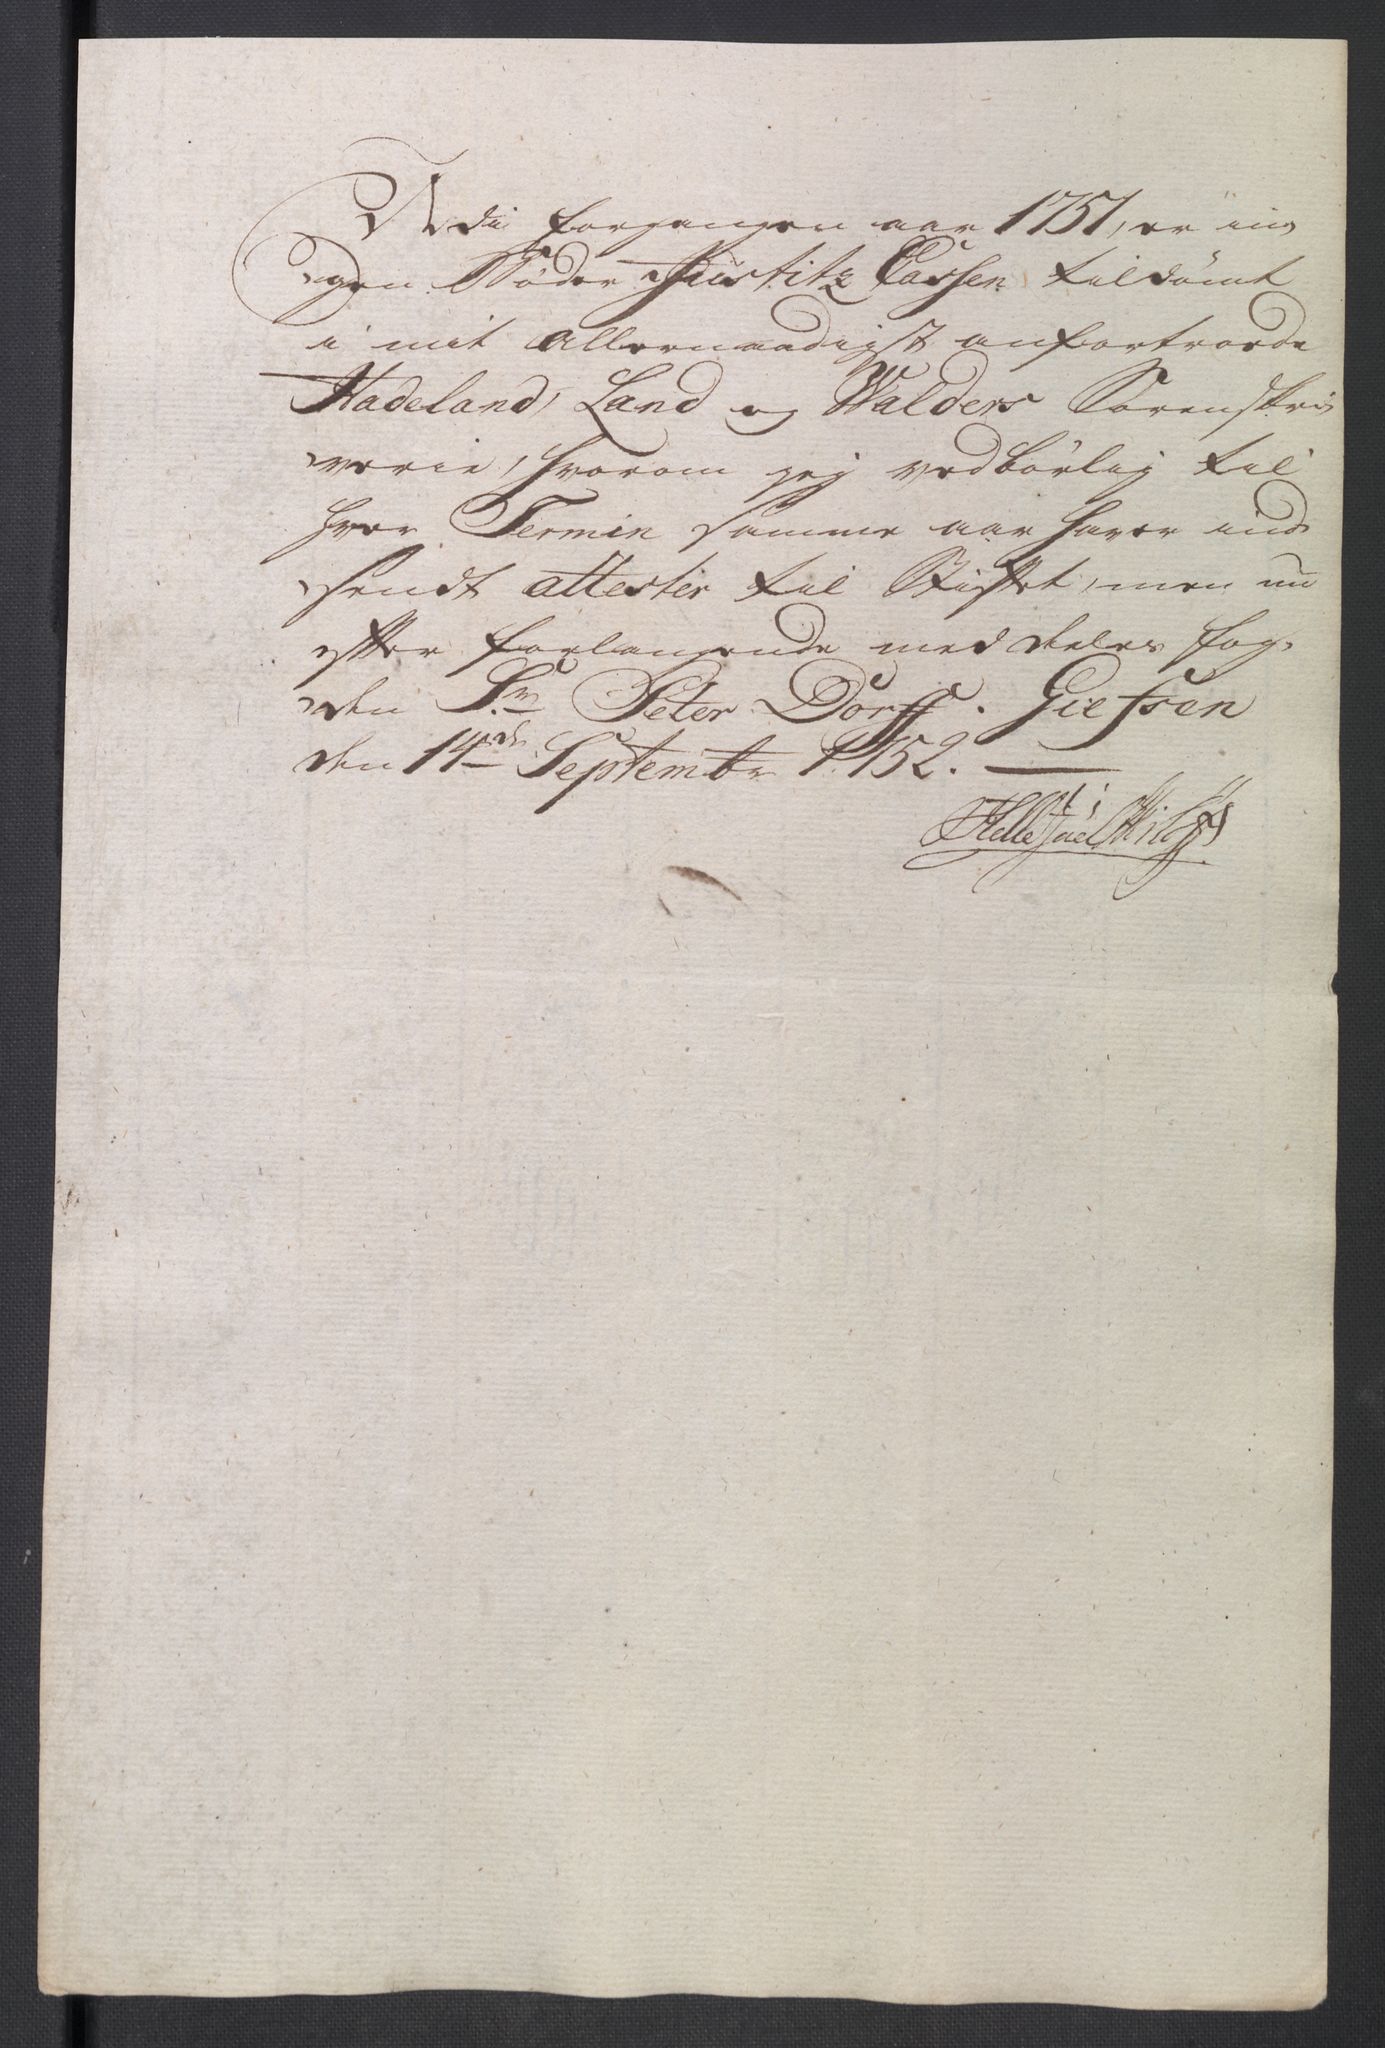 Udi forgangen aar 1751, er in„
gen Bøder Justitz Cassen tildømt
i mit allernaadigst anfortroede
Hadeland, Land og Walders Sorenskri„
verie, hvorom jeg vedbørlig til
hver Termin samme aar haver ind„
sendt attester til Stiftet, men nu
efter forlangende meddeles fog„
den Sr. Peter Dorff. Giefsen
den 14de Septembr 1752.